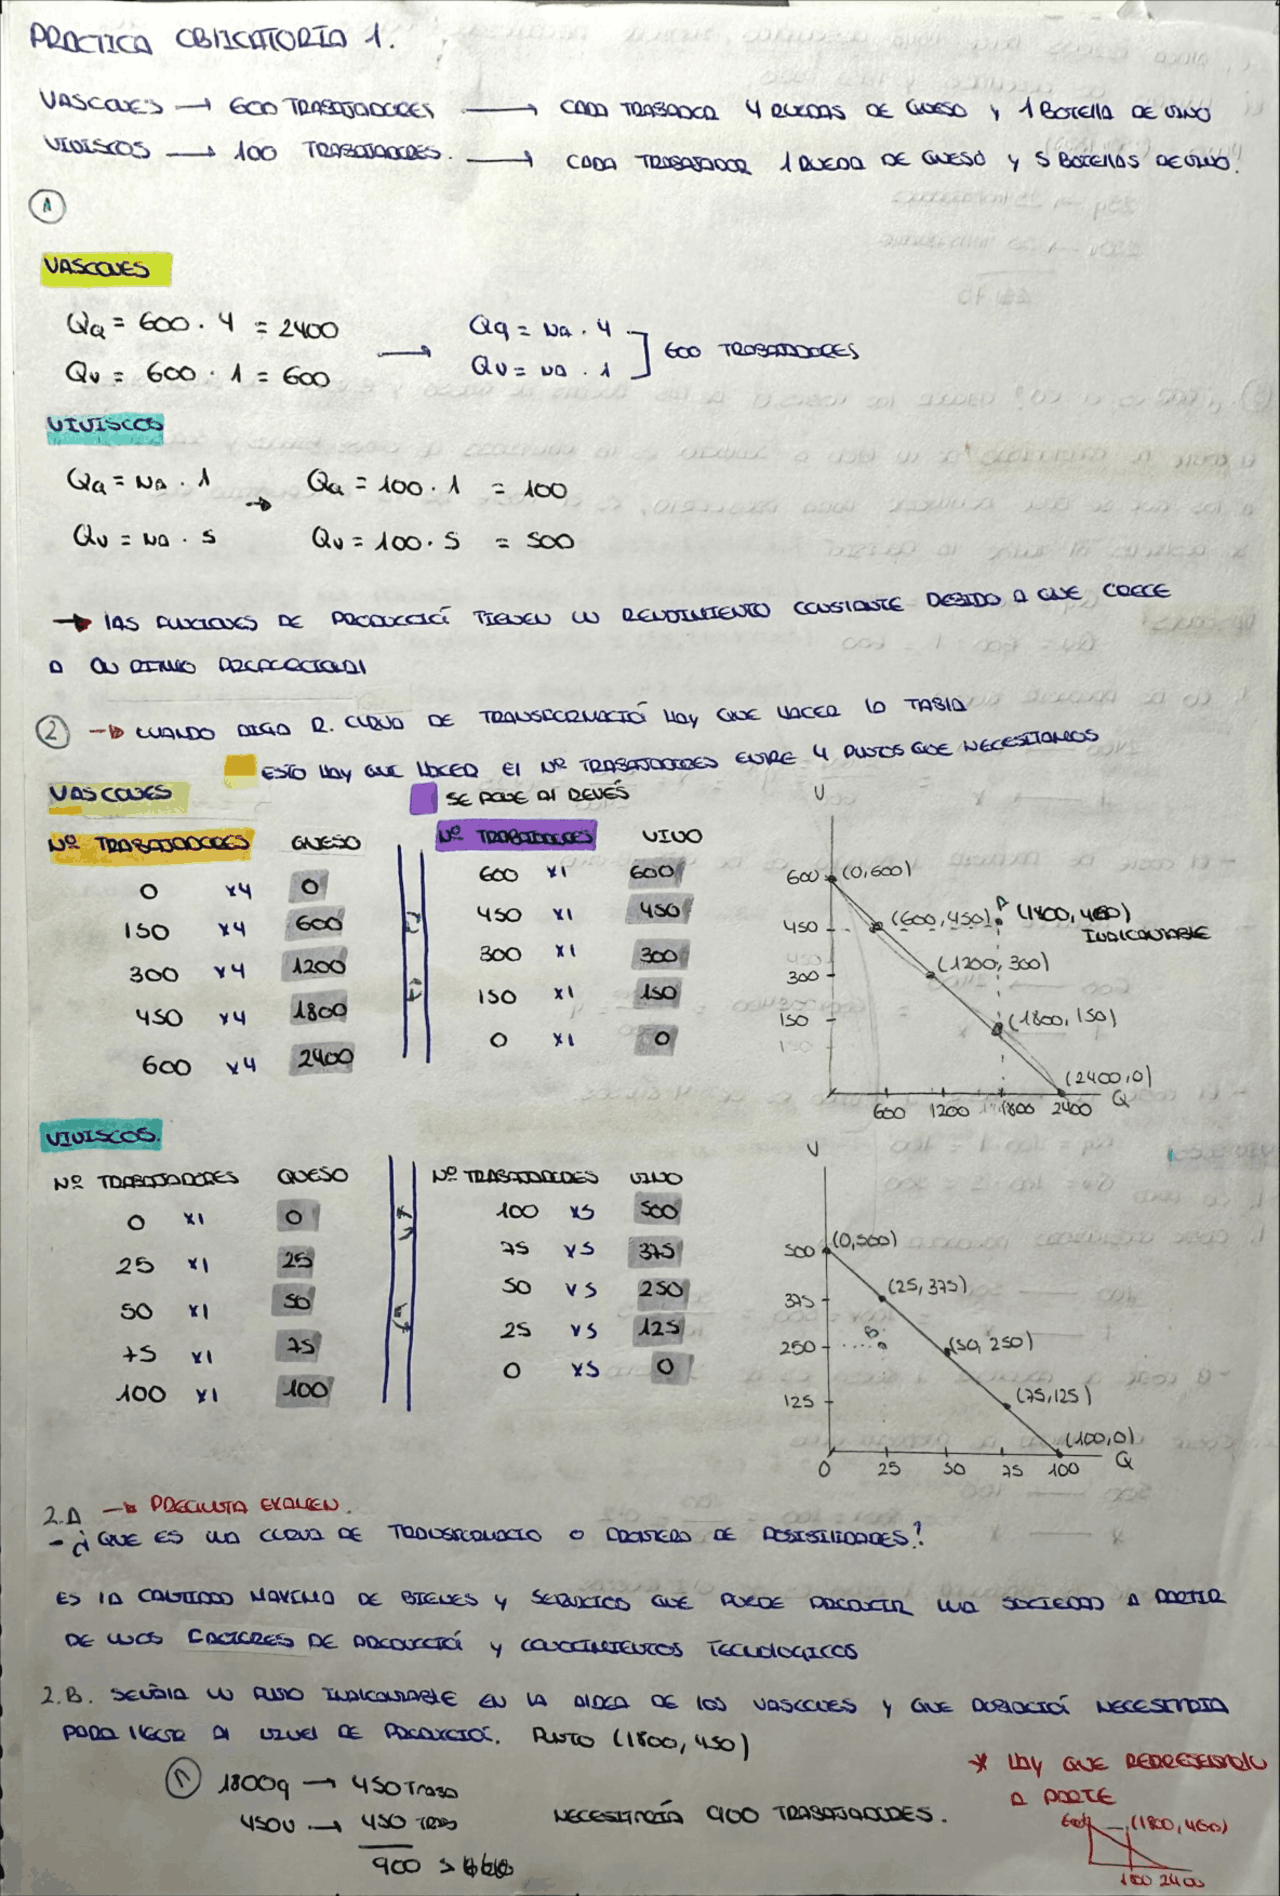 PRACTICA OBLICATORIA 1.
VASCONES → 600 TRABAJADORES → CADA TRABADOR 4 RUEDAS DE QUESO Y 1 BOTELLA DE VINO
VIVISCOS → 100 TRABAJADORES. → CADA TRABAJADOR 1 RUEDA DE QUESO Y 5 BOTELLAS DE VINO.
1
VASCONES
Qq = 600 · 4 = 2400 → Qq = Na · 4 ] 600 TRABAJADORES
Qv = 600 · 1 = 600 Qv = Na · 1
VIVISCOS
Qq = Na · 1 → Qq = 100 · 1 = 100
Qv = Na · 5 Qv = 100 · 5 = 500
→ LAS FUNCIONES DE PRODUCCIÓ TIENEN UN RENDIMIENTO CONSTANTE DEBIDO A QUE CRECE
A UN RITMO PROPORCIONAL
2 → CUANDO DIGA R. CURVA DE TRANSFORMACIÓ HAY QUE HACER LA TABLA
ESTO HAY QUE HACER EL Nº TRABAJADORES ENTRE 4 PUNTOS QUE NECESITAMOS
VASCONES SE PONE AL REVÉS
Nº TRABAJADORES QUESO Nº TRABAJADORES VINO
0 x4 0 600 x1 600
150 x4 600 450 x1 450
300 x4 1200 300 x1 300
450 x4 1800 150 x1 150
600 x4 2400 0 x1 0
V
600 (0,600)
450 (600,450) A (1800,450)
INALCANZABLE
300 (1200,300)
150 (1800,150)
(2400,0)
600 1200 1800 2400 Q
VIVISCOS.
Nº TRABAJADORES QUESO Nº TRABAJADORES VINO
0 x1 0 100 x5 500
25 x1 25 75 x5 375
50 x1 50 50 x5 250
75 x1 75 25 x5 125
100 x1 100 0 x5 0
V
500 (0,500)
375 (25,375)
250 B (50,250)
125 (75,125)
(100,0)
0 25 50 75 100 Q
2.A → PREGUNTA EXAMEN.
- ¿QUE ES UNA CURVA DE TRANSFORMACIO O FRONTERA DE POSIBILIDADES?
ES LA CANTIDAD MAXIMA DE BIENES Y SERVICIOS QUE PUEDE PRODUCIR UNA SOCIEDAD A PARTIR
DE UNOS FACTORES DE PRODUCCIÓ Y CONOCIMIENTOS TECNOLOGICOS
2.B. SEÑALA UN PUNTO INALCANZABLE EN LA ALDEA DE LOS VASCONES Y QUE POBLACIÓ NECESITARIA
PARA LLEGAR AL NIVEL DE PRODUCCIÓ. PUNTO (1800,450)
A 1800q → 450 TRABA
450V → 450 TRAB NECESITARÍA 900 TRABAJADORES.
900 > 600
* HAY QUE REPRESENTARLO
A PARTE
600 (1800,450)
1800 2400